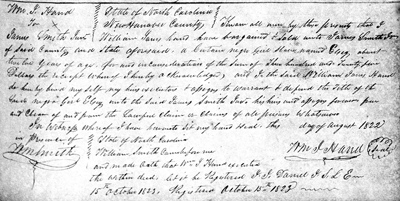 Wm J. Hand State of North Carolina
To New Hanover County Know all men by this presents that I
James Smith Junr William James Hand have bargained & Sold unto James Smith Jr
of Said County and State aforesaid a certain negro Girl Slave named Elcy about
twelve Year of age for and in consideration of the Sum of Two hundred and Twenty five
Dollars the receipt whereof I hereby acknowledge and I the Said William James Hand
do hereby bind my Self my heirs executors & assigns to warrant & defend the title of the
Said negro Girl Elcy unto the Said James Smith Junr his heirs and assigns forever
Clear of and from the Lawful Claim or Claims of all persons Whatsoever
In Witness whereof I have hereunto Set my hand and Seal this day of August 1822
in Presence of State of North Carolina
Wm Smith William Smith Came before me Wm J. Hand Seal
and made oath that Wm J Hand executed
the within deed. Let it be Registered J. J. Daniel J. S. L. E
15th October 1823. Registered October 15th 1823